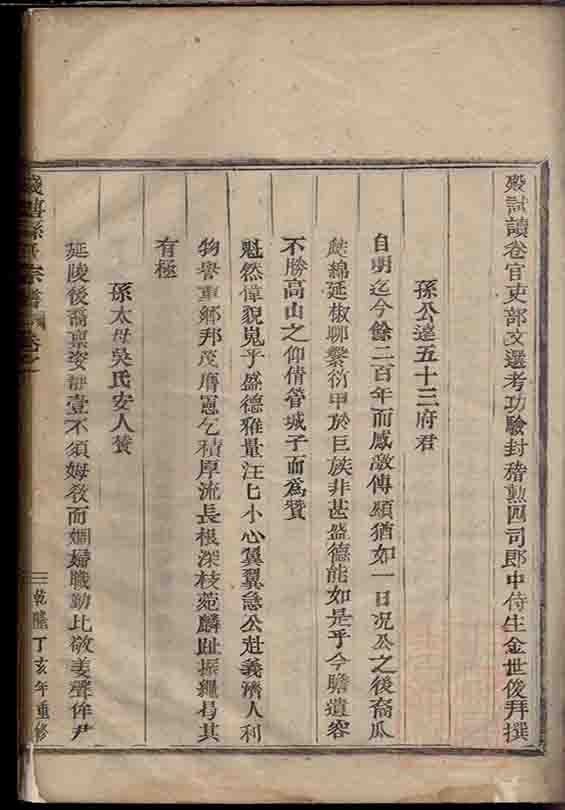 殿試讀卷官吏部文選考功驗封稽勲四司郎中侍生金世俊拜撰
孫公達五十三府君
自明迄今餘二百年而感激傳頌猶如一日況公之後裔瓜
瓞綿延椒聊繁衍甲於巨族非甚盛德能如是乎今瞻遺容
不勝高山之仰倩管城子而爲贊
魁然偉貌嵬乎盛德雅量汪匕小心翼翼急公赴義濟人利
物譽重鄉邦茂膺憲乞積厚流長根深枝菀麟趾振繩曷其
有極
孫太母吳氏安人贊
延陵後裔稟姿靜壹不須姆敎而嫻婦職勤比敬姜聲侔尹
孫氏宗譜
乾隆丁亥年重修